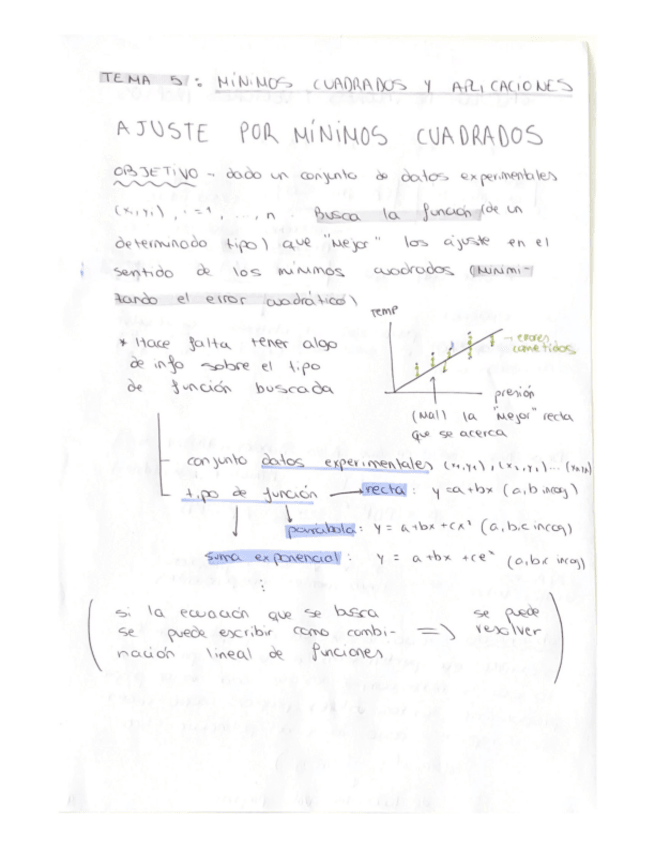 TEMA 5: MÍNIMOS CUADRADOS Y APLICACIONES
AJUSTE POR MÍNIMOS CUADRADOS
OBJETIVO - dado un conjunto de datos experimentales
(xi,yi), i=1, ..., n. Busca la función (de un
determinado tipo) que "Mejor" los ajuste en el
sentido de los mínimos cuadrados (Minimi-
zando el error cuadrático)
* Hace falta tener algo
de info sobre el tipo
de función buscada
Temp
→ errores cometidos
presión
(Mal) la "Mejor" recta
que se acerca
conjunto datos experimentales (x1,y1), (x2,y2)... (xn,yn)
tipo de función → recta: y=a+bx (a,b incog)
parábola: y = a+bx+cx² (a,b,c incog)
suma exponencial: y = a+bx+ceˣ (a,b,c incog)
⋮
si la ecuación que se busca
se puede escribir como combi-
nación lineal de funciones
=> se puede resolver